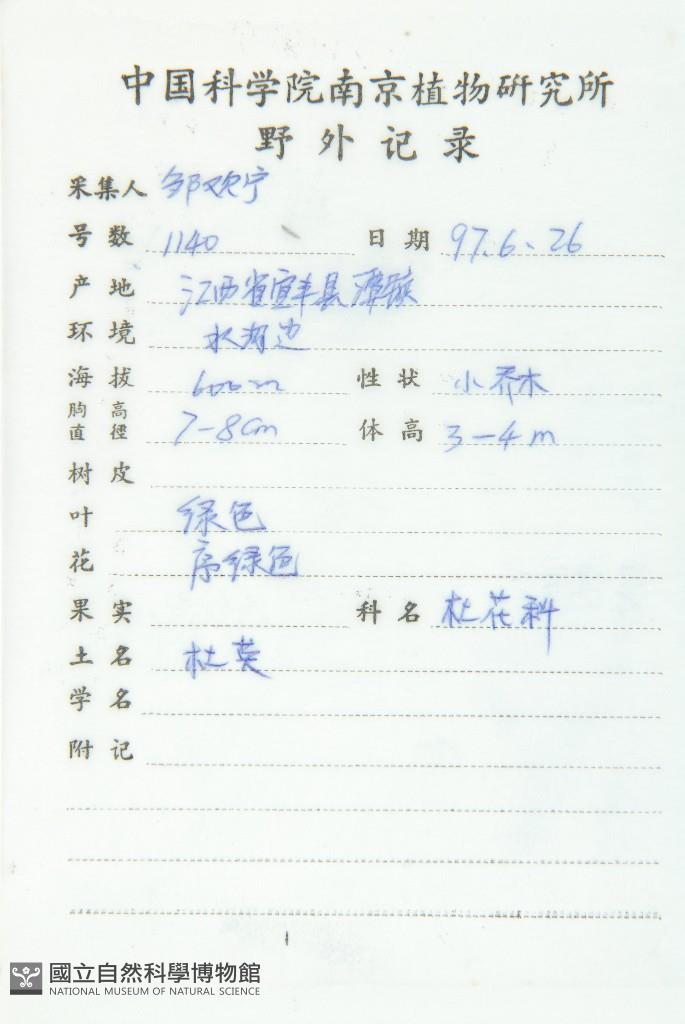 中国科学院南京植物研究所
野外记录
采集人 邹欢宁
号数 1140 日期 97.6.26
产地 江西省宜丰县潭
环境 水沟边
海拔 600m 性状 小乔木
胸高直径 7-8cm 体高 3-4m
树皮
叶 绿色
花 序绿色
果实 科名 杜花科
土名 杜英
学名
附记
國立自然科學博物館
NATIONAL MUSEUM OF NATURAL SCIENCE